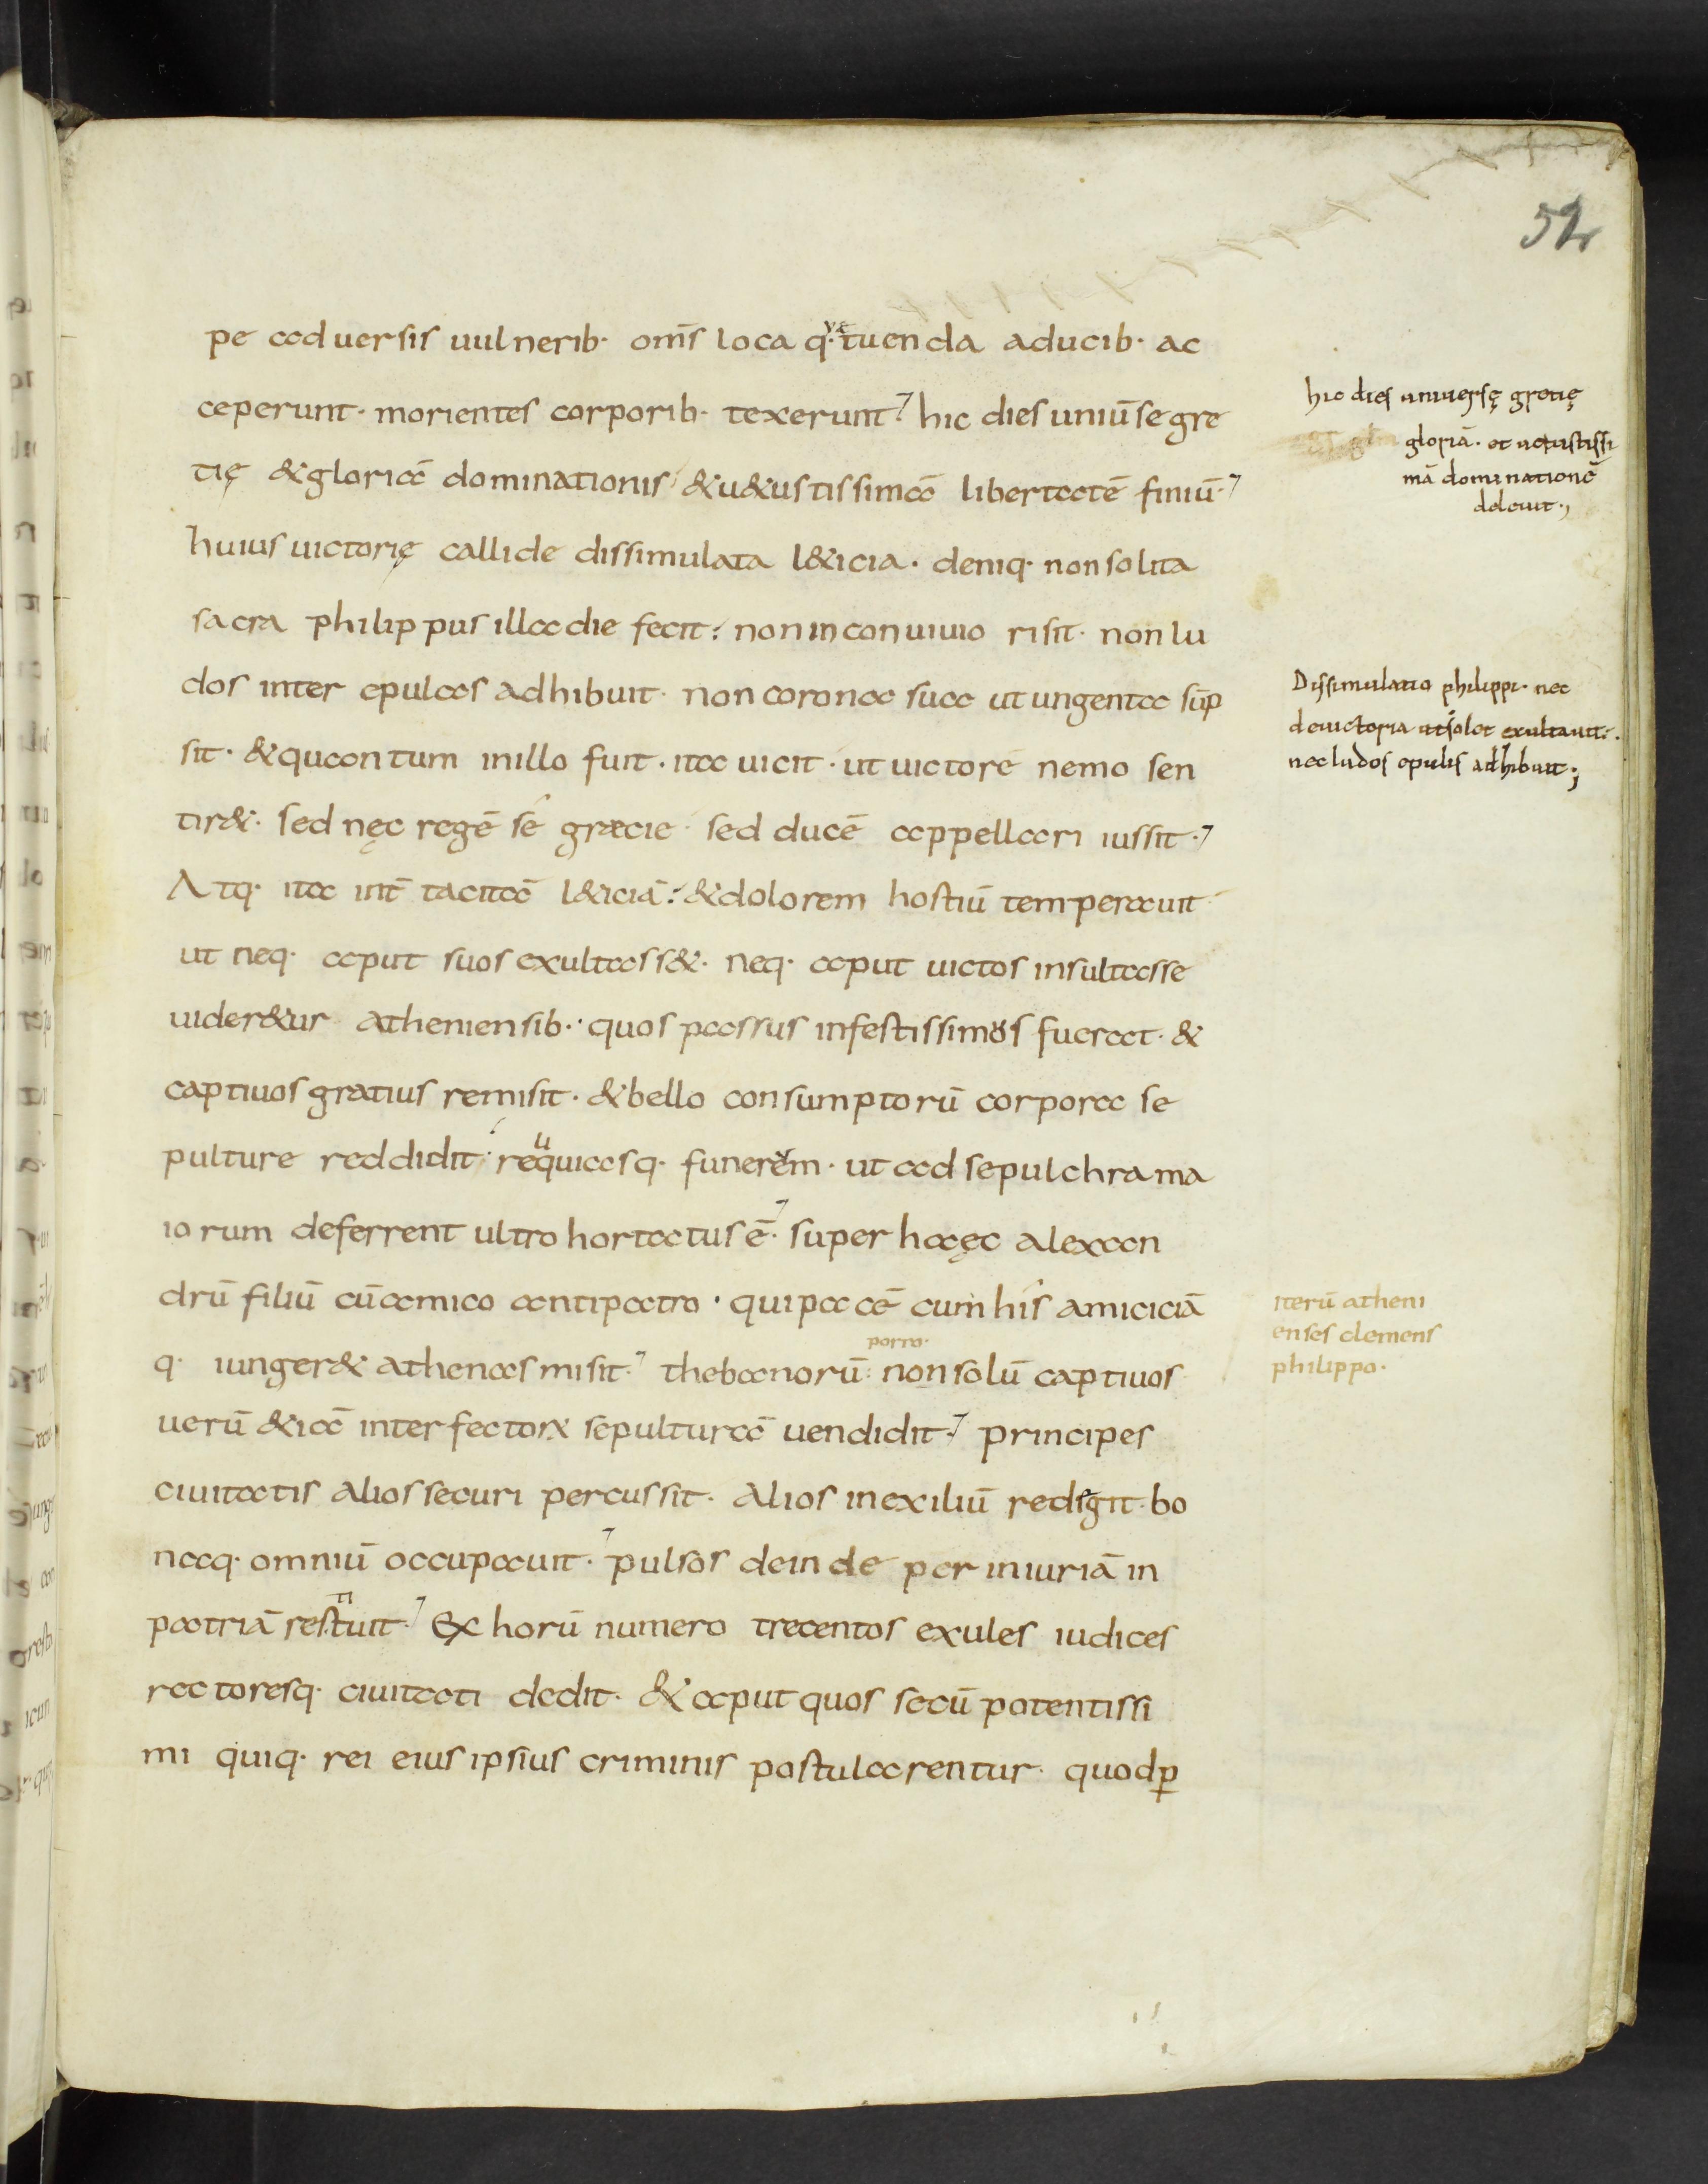 52
pe aduersis uulnerib· om̄s loca q·ue tuenda aducib· ac
ceperunt· morientes corporib· texerunt· hic dies uniū se gre
tię & gloriā dominationis & u&ustissimā libertatē finiū·
huius uictorię callide dissimulata l&icia· deniq· non solita
sacra philippus illa die fecit· non in conuiuio risit· non lu
dos inter epulas adhibuit· non corona sua ut ungenta sūp
sit· & quantum inillo fuit· ita uicit· ut uictorē nemo sen
tir&· sed nęc regē se graecie· sed ducē appellari iussit·
Atq· ita int̄ tacitā l&iciā· & dolorem hostiū temperauit
ut neq· aput suos exultass&· neq· aput uictos insultasse
uider&ur atheniensib· quos passus infestissimos fuerat· &
captiuos gratius remisit· & bello consumptorū corpora se
pulture reddidit· requiasq· funerem· ut ad sepulchra ma
iorum deferrent ultro hortatus ē· super haęc alexan
drū filiū cū amico antipatro· qui pacē cum his amiciciā
q· iunger& athenas misit· thebanorū porro· non solū captiuos
uerū & iā interfectorꝝ sepulturā uendidit· principes
ciuitatis alios securi percussit· alios in exiliū redegit· bo
naq· omniū occupauit· pulsos deinde per iniuriā in
patriā restituit· Ex horū numero trecentos exules iudices
rectoresq· ciuitati dedit· & aput quos secū potentissi
mi quiq· rei eius ipsius criminis postularentur· quod ꝑ
hic dies uniuersę gretię
gloriā· et uetustissi
mā dominationē
deleuit·,
Dissimulatio philippi· nec
de uictoria ut solet exultauit·
nec ludos epulis adhibuit·;
iterū atheni
enses clemens
philippo·